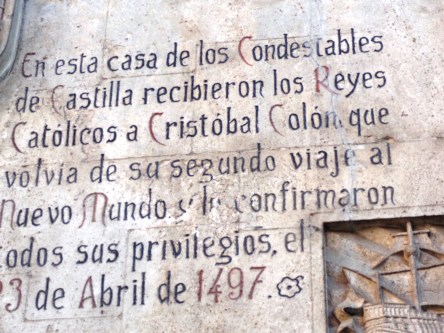 En esta casa de los Condestables
de Castilla recibieron los Reyes
Católicos a Cristóbal Colón, que
volvia de su segundo viaje al
Nuevo Mundo y le confirmaron
todos sus privilegios, el
23 de Abril de 1497.